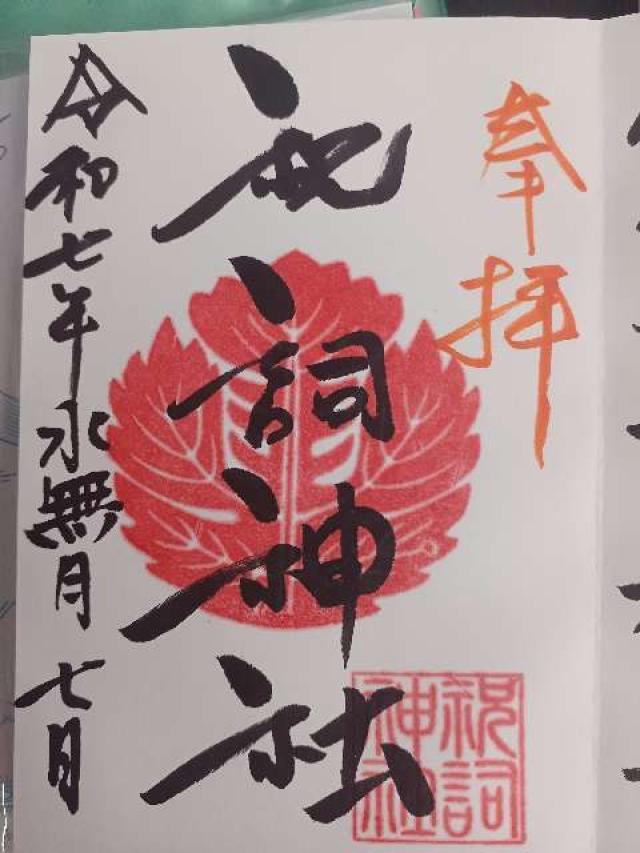 奉拝
祝詞神社
祝詞
神社
令和七年水無月七日